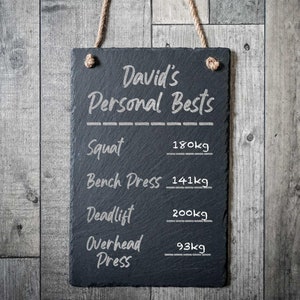 David's
Personal Bests
Squat 180kg
Bench Press 141kg
Deadlift 200kg
Overhead
Press 93kg